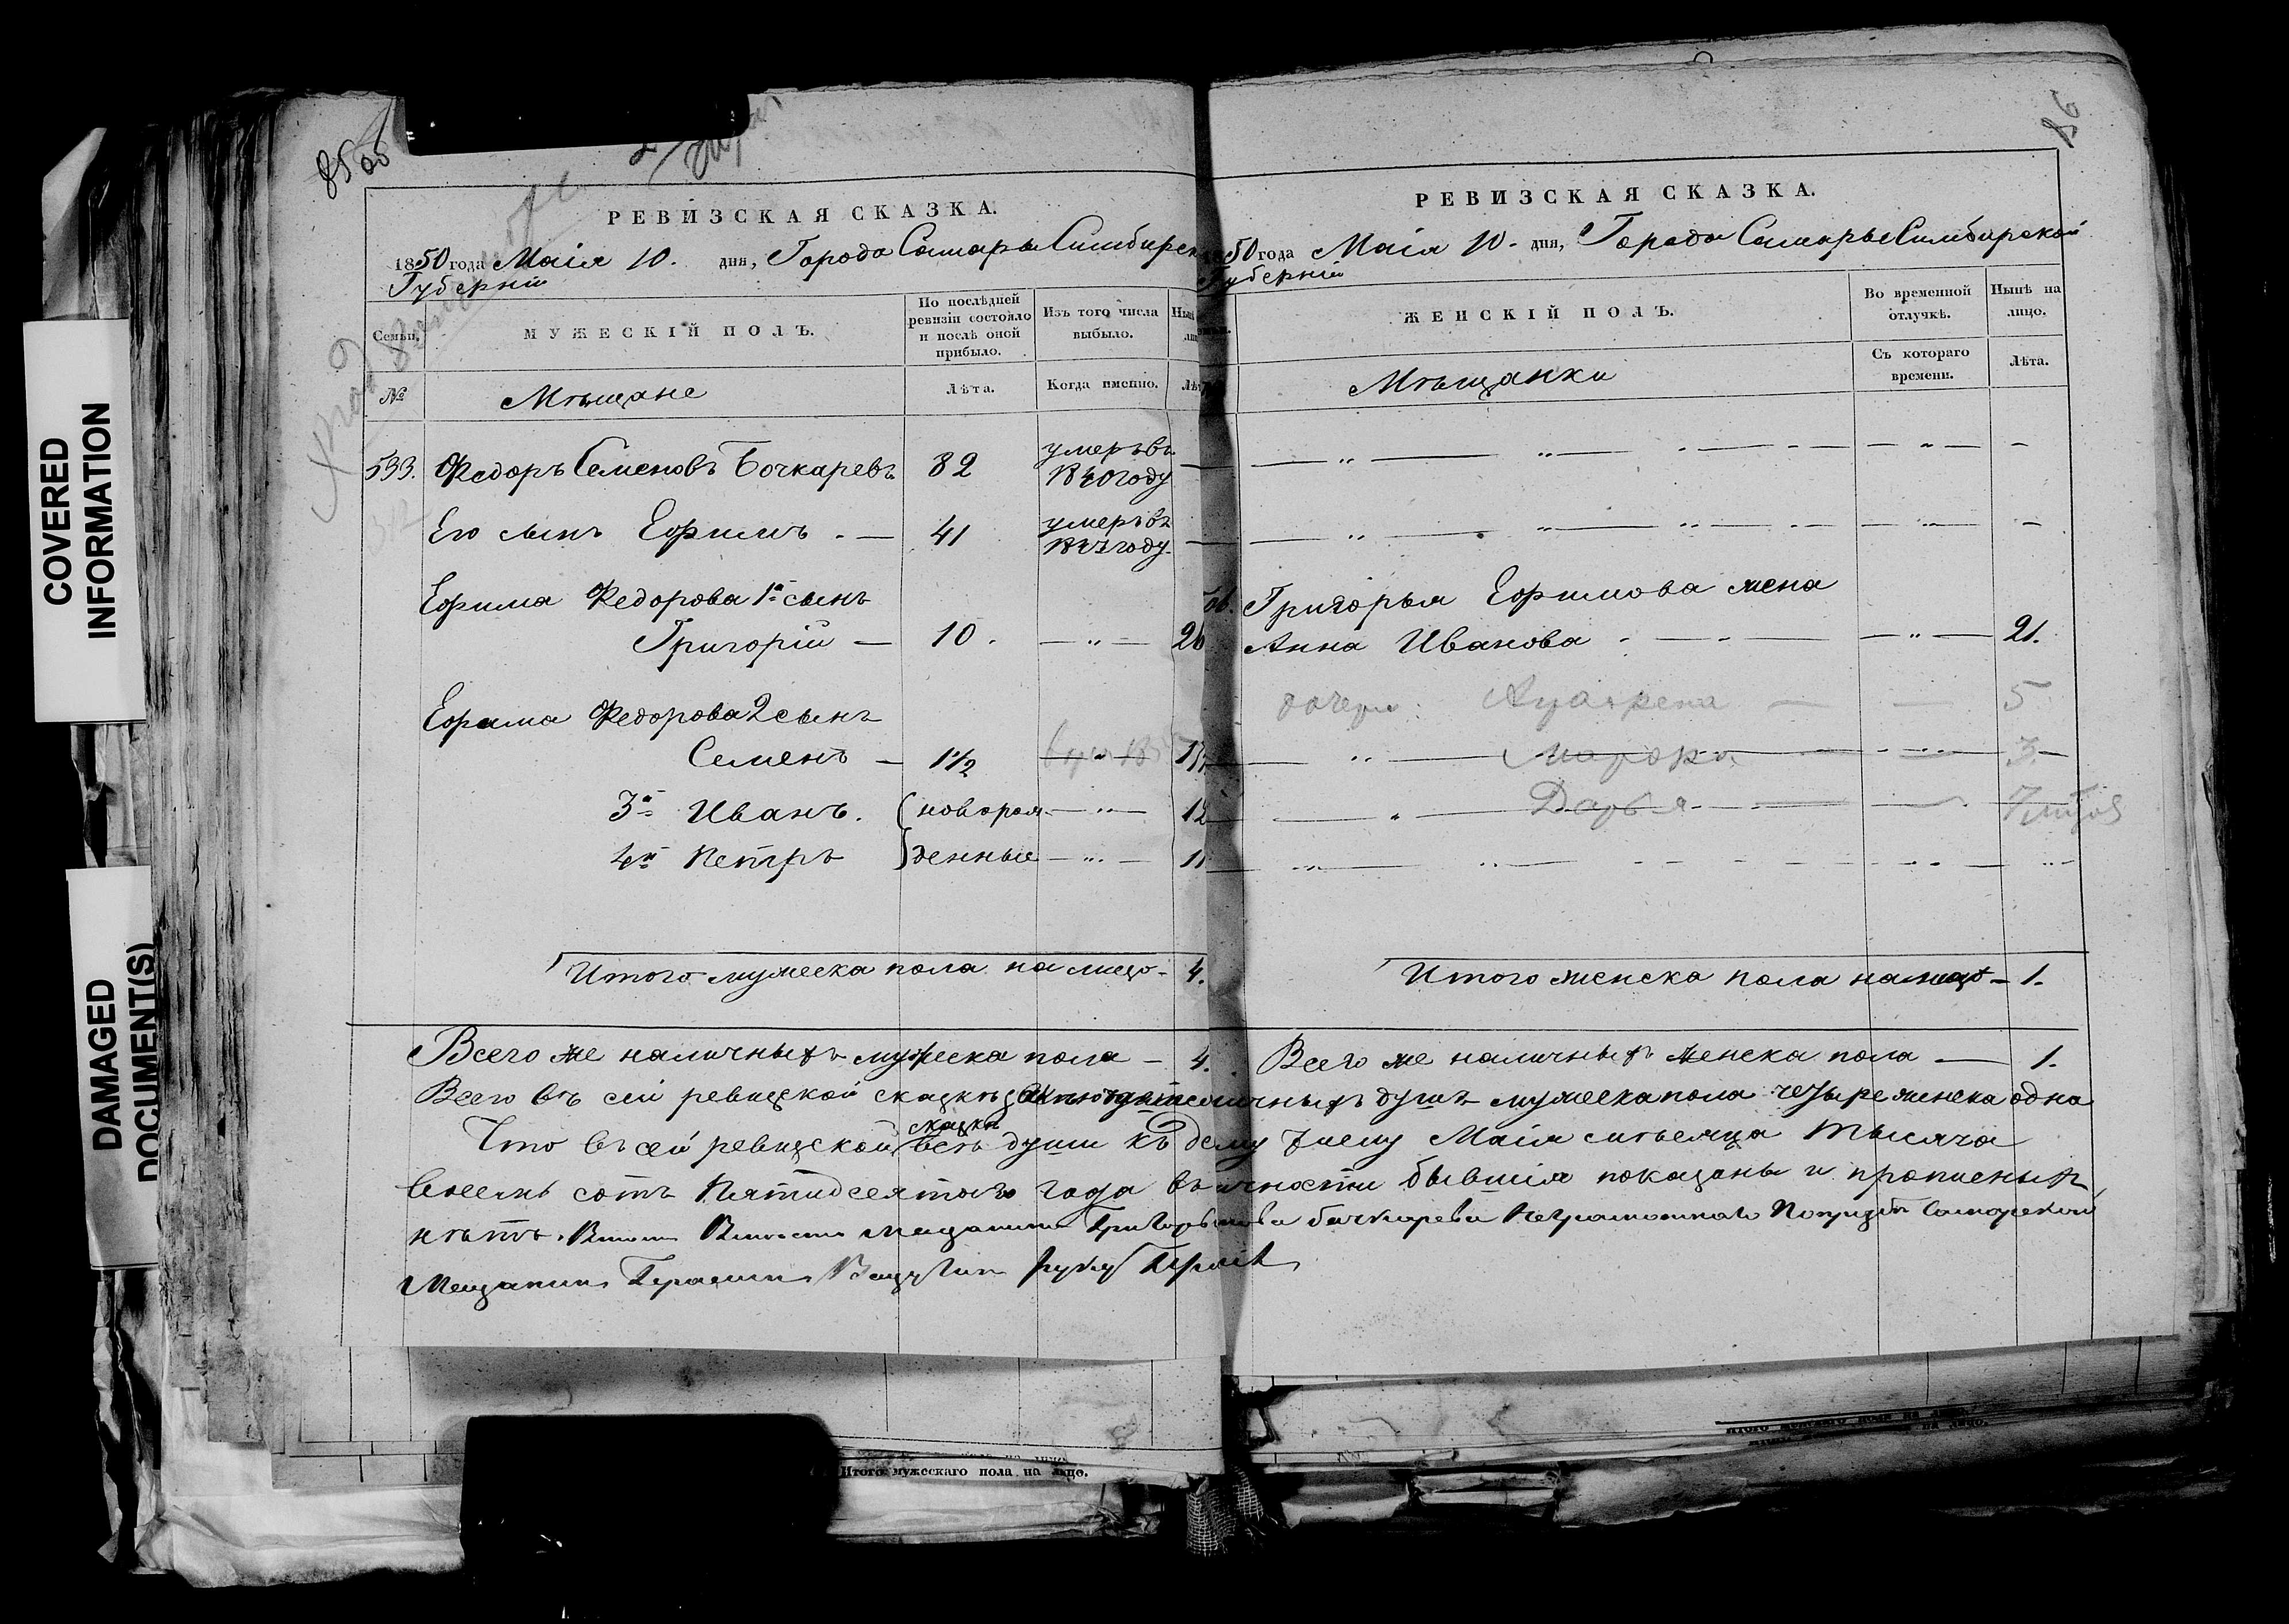 COVERED
INFORMATION
DAMAGED
DOCUMENT(S)
85 об
РЕВИЗСКАЯ СКАЗКА.
1850 года Маія 10. дня, Города Самары Симбирск
Губерніи
Семьи.
МУЖЕСКІЙ ПОЛЪ.
По послѣдней
ревизіи состояло
и послѣ оной
прибыло.
Изъ того числа
выбыло.
№
Мѣщане
Лѣта.
Когда именно.
593. Федоръ Семеновъ Бочкаревъ 82 умеръ въ 1840 году —
Его сынъ Ефимъ . — 41 умеръ въ 1847 году —
Ефима Федорова 1й сынъ
Григорій — 10 . — „ — 20
Ефима Федорова 2 сынъ
Семенъ — 1½
3й Иванъ. (новорож — „ — 12
4й Петръ }денные — „ — 11
Итого мужеска пола на лицо - 4.
Всего же наличныхъ мужеска пола — 4.
86
РЕВИЗСКАЯ СКАЗКА.
50 года Маія 10. дня, Города Самары Симбирской
Губерніи
ЖЕНСКІЙ ПОЛЪ.
Во временной
отлучкѣ.
Нынѣ на
лицо.
Мѣщанки
Съ котораго
времени.
Лѣта.
Григорья Ефимова жена
Анна Иванова - — - — — „ — 21.
дочери: — — 5
Марфа 3.
Дарья 7
Итого женска пола на лицо — 1.
Всего же наличныхъ женска пола — 1.
Всего въ сей ревизской сказкѣ наличныхъ душъ мужеска пола четыре женска одна
Что въ сей ревизской сказкѣ всѣ души къ дему числу Маія мѣсяца тысяча
восемь сотъ пятидесятого года въ личности бывшія показаны и прописныхъ
нѣтъ. мещанинъ Бачкарева Неграмотнаго Самарской
Мещанинъ Герасимъ руку
Итого мужескаго пола на лицо.